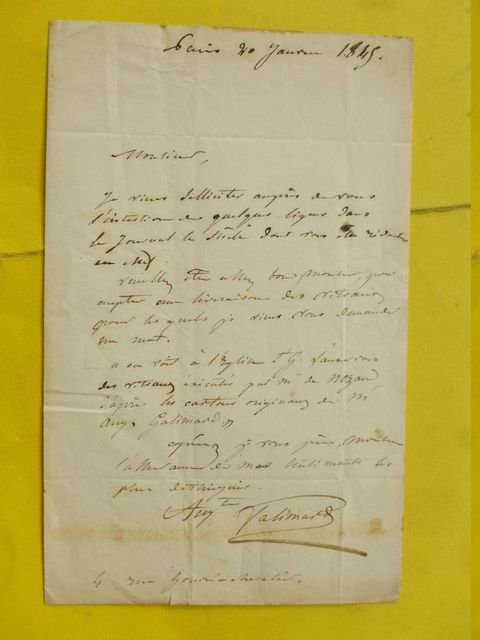 Paris 20 Janvier 1845.
Monsieur,
Je viens solliciter auprès de vous
l'insertion de quelques lignes dans
le Journal le Siècle dont vous êtes rédacteur
en chef.
Veuillez être assez bon Monsieur, pour
accepter une livraison des vitraux
pour lesquels je viens vous demander
un mot.
« on voit à l'Eglise St G. l'auxerrois
des vitraux exécutés par Mr de Nozan
d'après les cartons originaux de Mr
Aug. Galimard »
agréez je vous prie, Monsieur
l'assurance de mes sentiments les
plus distingués.
Augte Galimard
4 rue